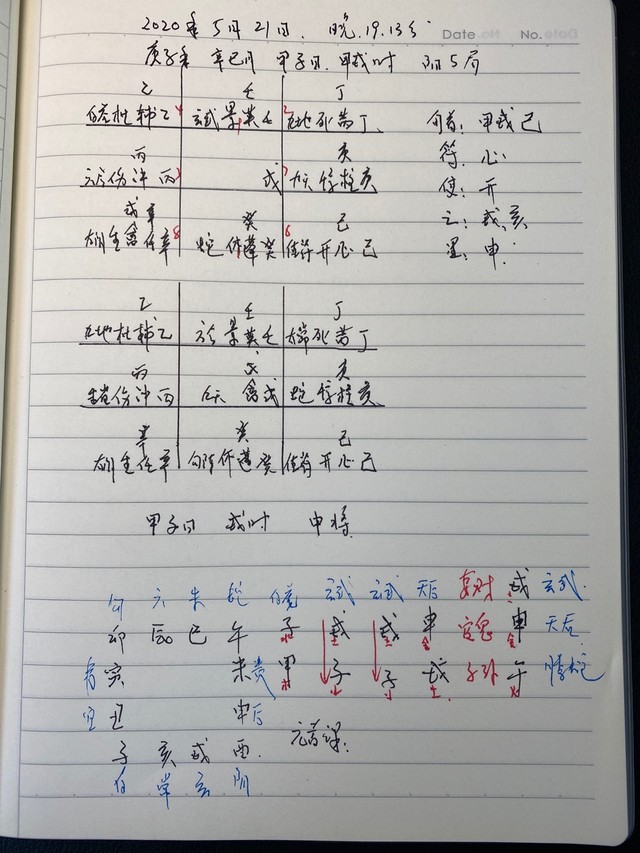 Date No.
2020年5月21日. 晚.19.13分
庚子年 辛巳月 甲子日. 甲戌时 阳5局
乙 壬 丁
杜辅乙 玄武景英壬 九地死芮丁 旬首：甲戌己
丙 庚 符：心
六合伤冲丙 戊 九天惊柱庚 使：开
戊辛 癸 己 空：戌亥
生禽任辛 蛇休蓬癸 值符开心己 星：申
乙 壬 丁
九地杜辅乙 景英壬 死芮丁
丙 戊 庚
伤冲丙 九天禽戊 蛇惊柱庚
辛 癸 己
生任辛 休蓬癸 值符开心己
甲子日 戌时 申将
勾 六 朱 蛇 玄武 玄武 天后 妻财 戌 玄武
卯 辰 巳 午 子 戌 戌 申 官鬼 申 天后
青 寅 未 贵 甲 子 子 戌 子孙 午 螣蛇
空 丑 申 后
子 亥 戌 酉 元首课.
白 常 玄 阴